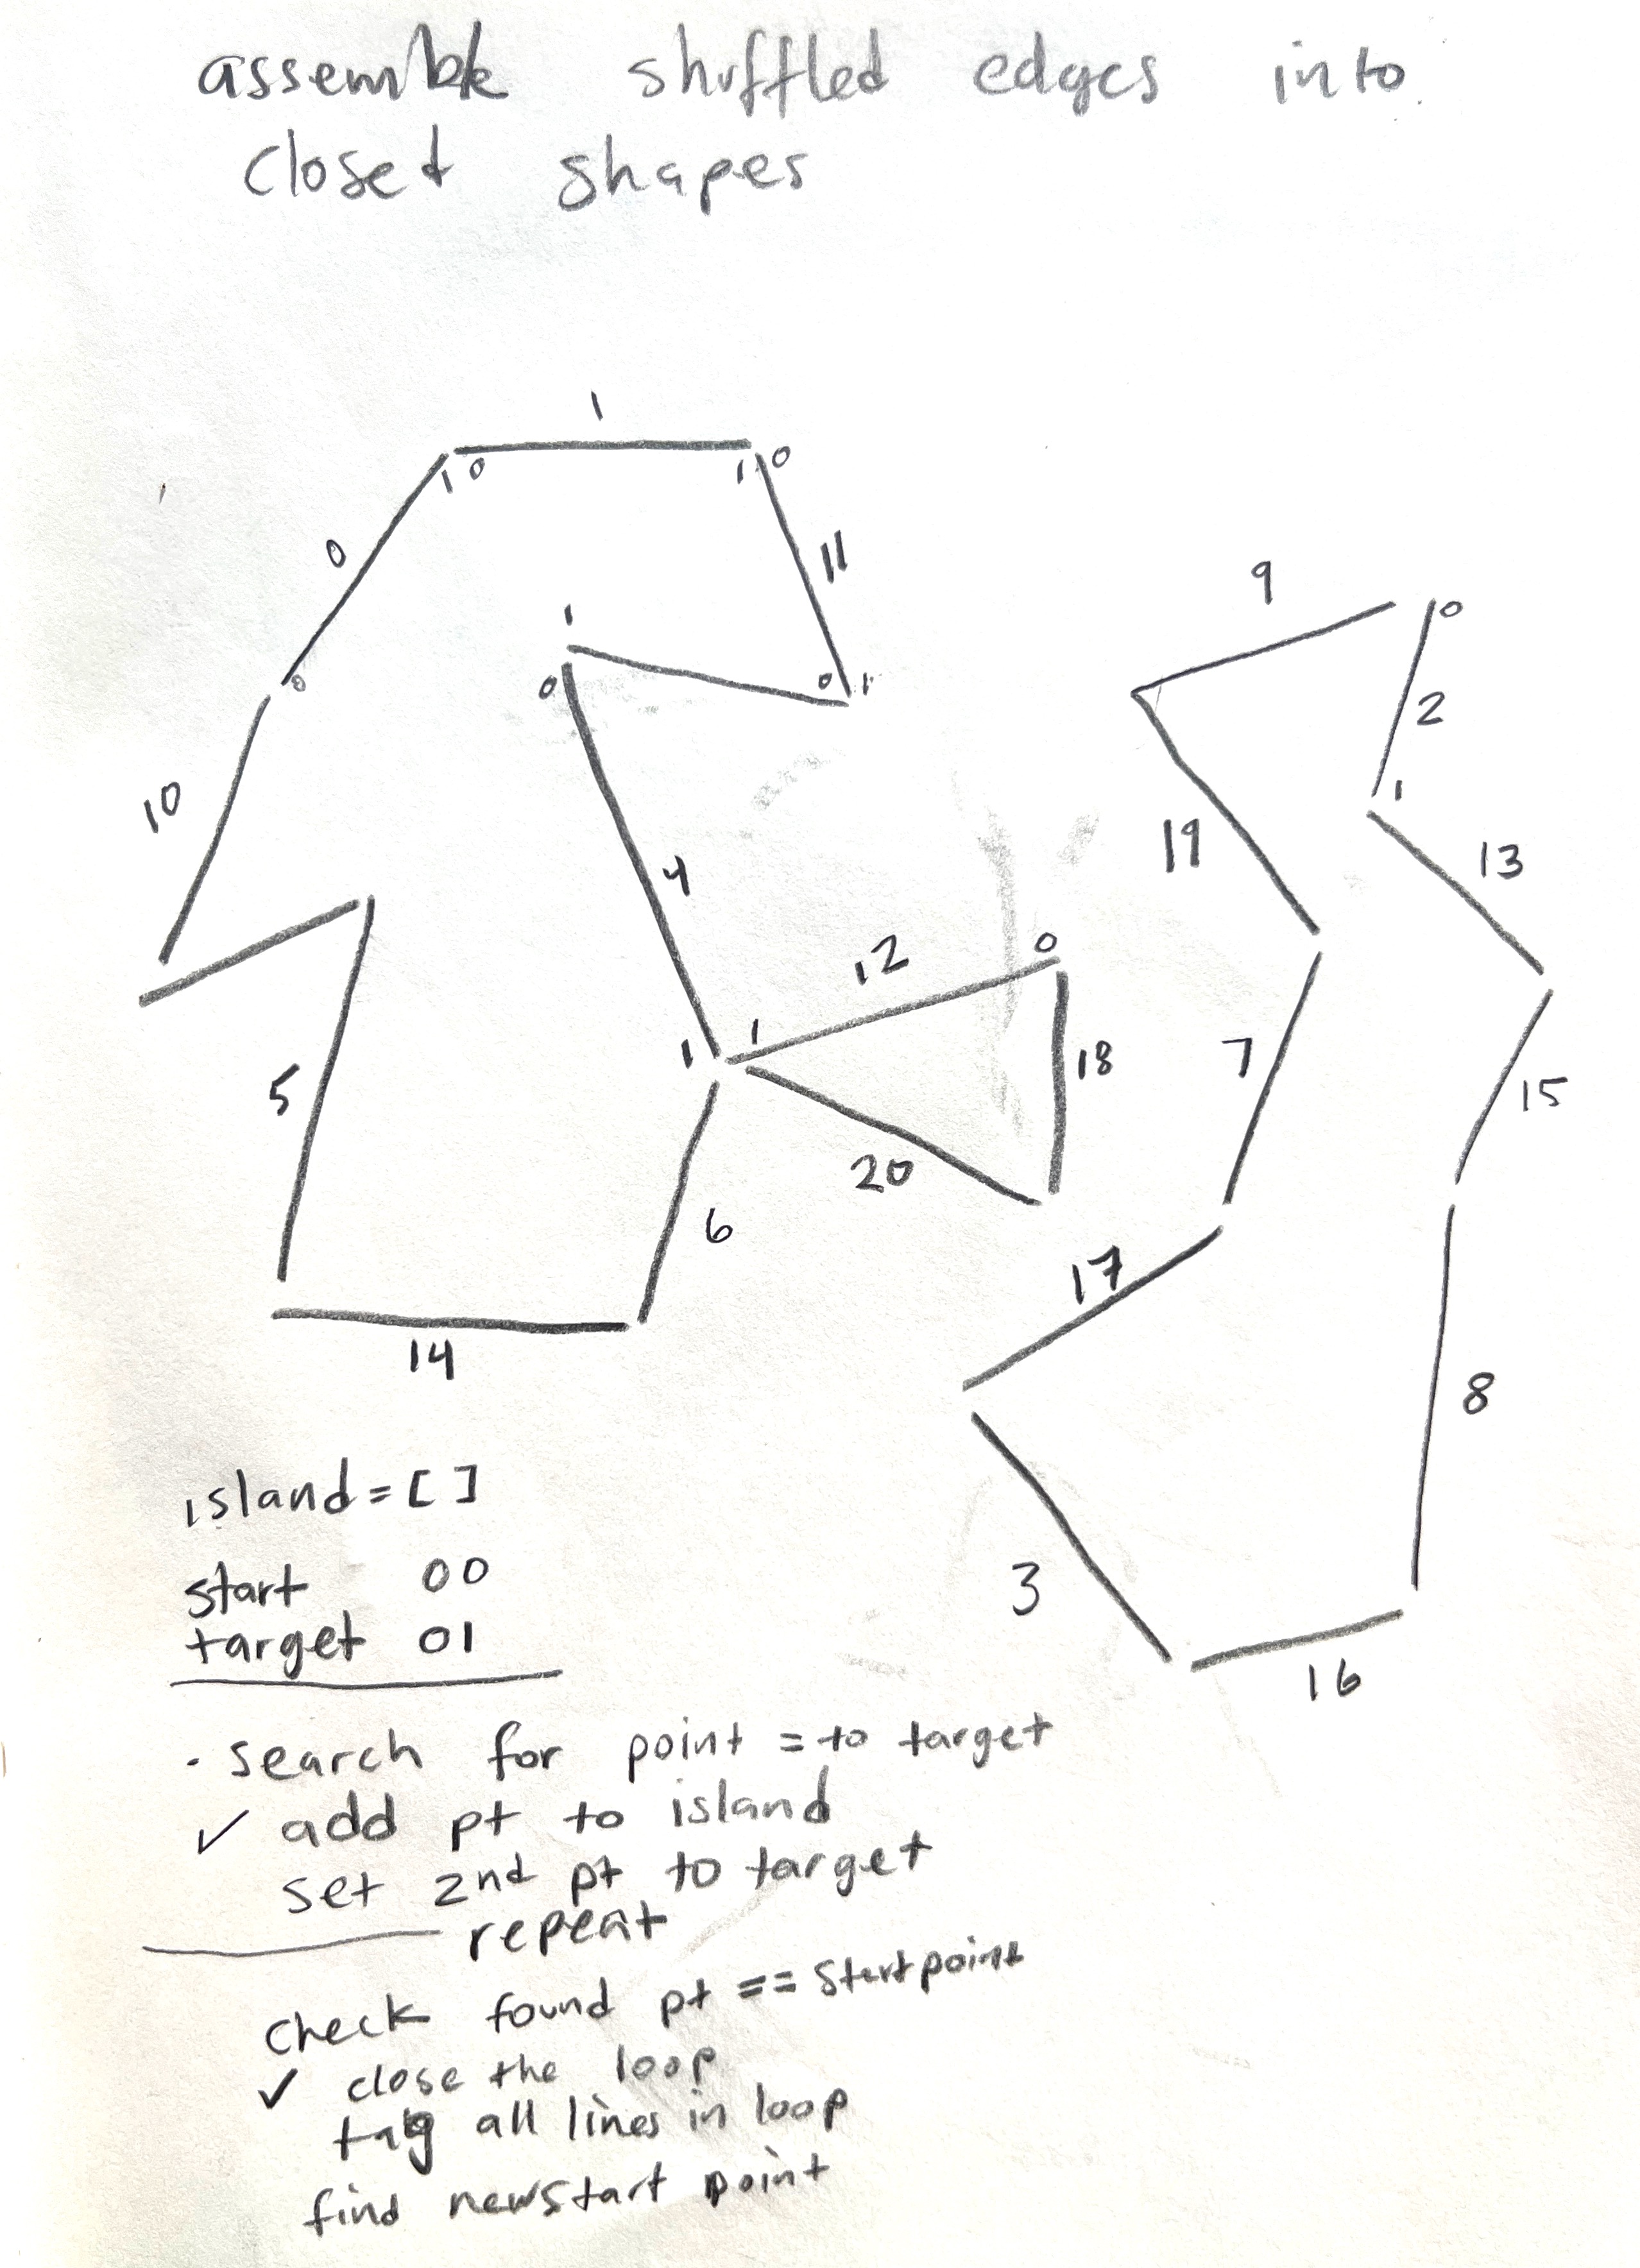 assemble shuffled edges into
closed shapes
1
1 0
1 0
0
11
1
0
0 1
0
10
4
5
12
0
1
1
18
20
6
14
9
0
2
1
19
13
7
15
17
8
3
16
island = [ ]
start 00
target 01
. search for point = to target
✓ add pt to island
set 2nd pt to target
repeat
check found pt == startpoint
✓ close the loop
tag all lines in loop
find new start point